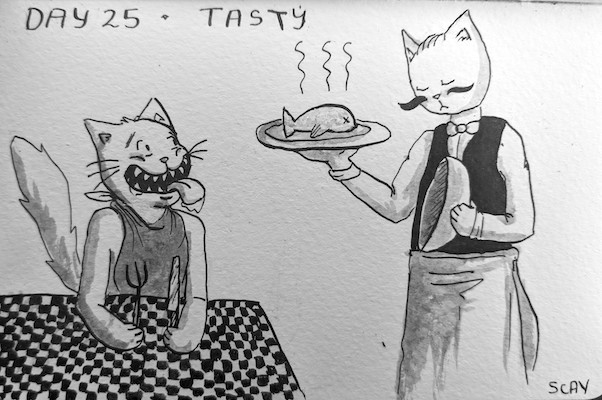 DAY 25 • TASTY
SCAY